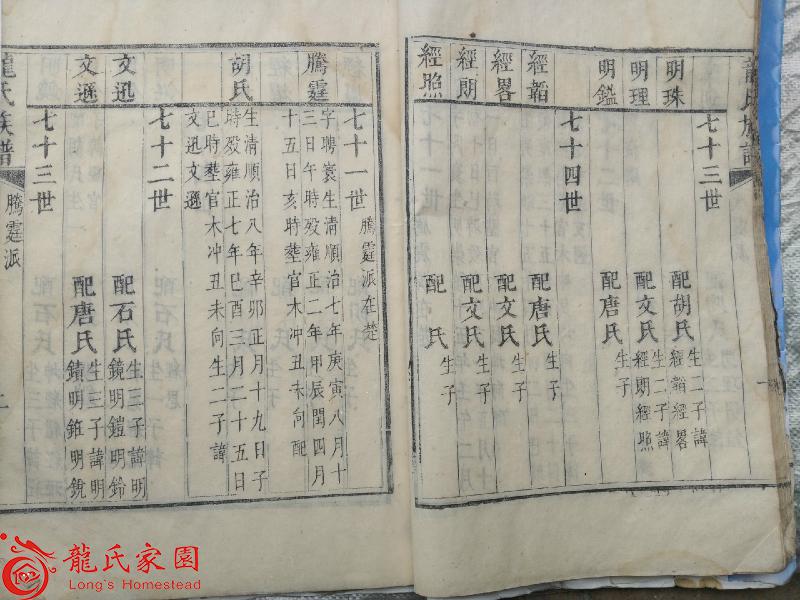 龍氏族譜
七十三世
明珠 配胡氏 生二子諱經韜經畧
明理 配文氏 生二子諱經朗經照
明鑑 配唐氏 生子
七十四世
經韜 配唐氏 生子
經畧 配文氏 生子
經朗 配文氏 生子
經照 配 氏 生子
七十一世 騰霆派在楚
騰霆 字聘寰生清順治七年庚寅八月十
三日午時殁雍正二年甲辰閏四月
十五日亥時塟官木冲丑未向配
胡氏 生清順治八年辛卯正月十九日子
時殁雍正七年己酉三月二十五日
巳時塟官木冲丑未向生二子諱
文迅文遜
七十二世
文迅 配石氏 生三子諱明
鏡明鎧明鈴
文遜 配唐氏 生三子諱明
鐼明錐明銳
七十三世
龍氏族譜 騰霆派
龍氏家園
Long's Homestead